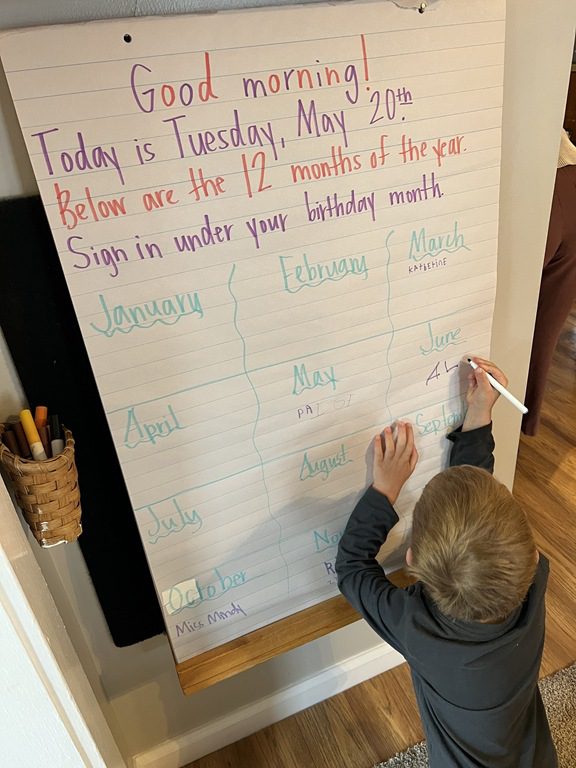 Good morning!
Today is Tuesday, May 20th.
Below are the 12 months of the year.
Sign in under your birthday month.
January
February
March
KAtHERINE
April
May
June
July
August
October
Miss Mandy